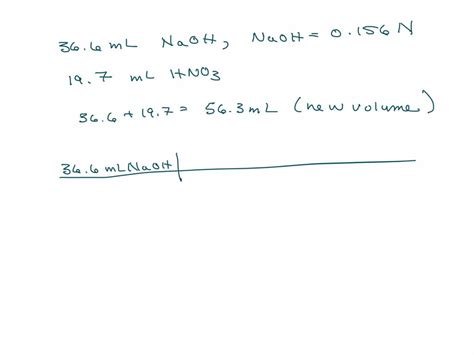 36.6 mL NaOH, NaOH = 0.156 N
19.7 mL HNO3
36.6 + 19.7 = 56.3 mL (new volume)
36.6 mL NaOH